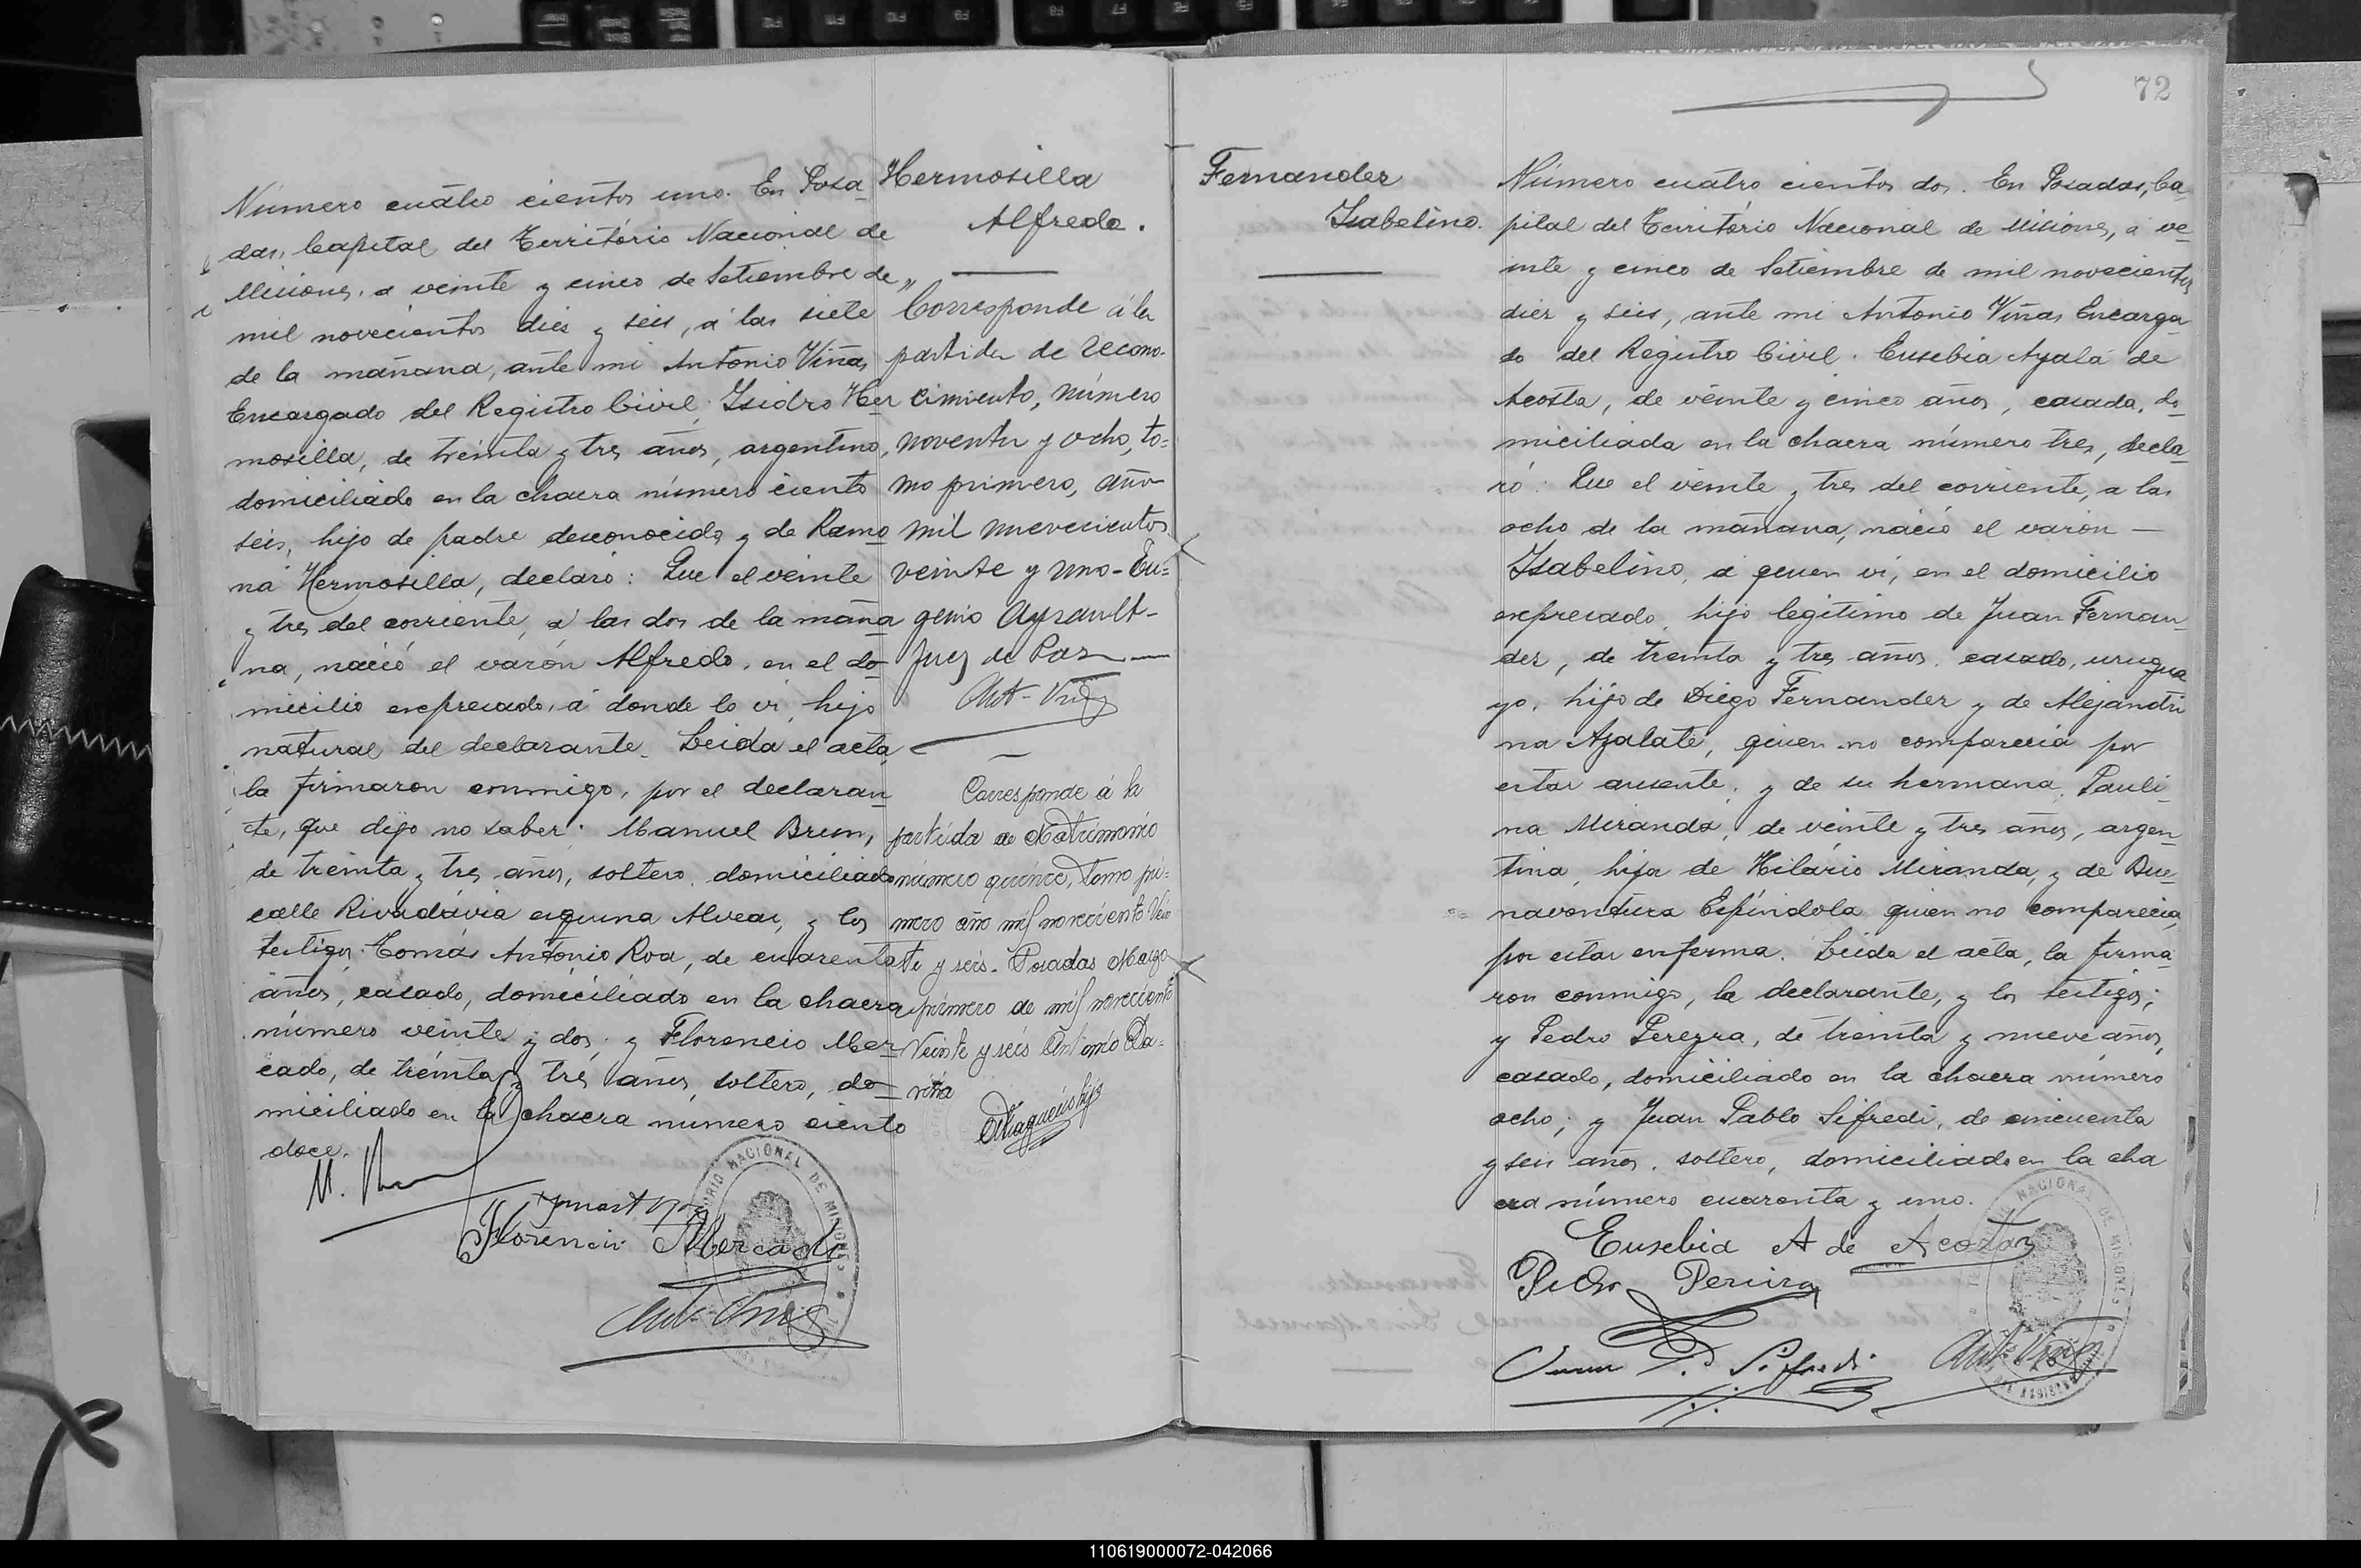 Número cuatro cientos uno. En Posa
das, Capital del Territorio Nacional de
Misiones, a veinte y cinco de Setiembre de
mil novecientos diez y seis, á las siete
de la mañana, ante mi Antonio Viñas
Encargado del Registro Civil, Isidro Her
mosilla, de treinta y tres años, argentino,
domiciliado en la chacra número ciento
seis, hijo de padre desconocido y de Ramo
na Hermosilla, declaró: Que el veinte
y tres del corriente, á las dos de la maña
na, nació el varón Alfredo, en el do
micilio expresado, á donde lo vi, hijo
natural del declarante. Leida el acta
la firmaron conmigo, por el declaran
te, que dijo no saber: Manuel Brun,
de treinta y tres años, soltero, domiciliado
calle Rivadavia esquina Alvear, y los
testigos Tomás Antonio Roa, de cuarenta
años, casado, domiciliado en la chacra
número veinte y dos, y Florencio Mer
cado, de treinta y tres años, soltero, do
miciliado en la chacra numero ciento
doce.
Florencio Mercado
Hermosilla
Alfredo.
Corresponde á la
partida de recono-
cimiento, número
noventa y ocho, to=
mo primero, año
mil nuevecientos
veinte y uno - Eu=
genio Ayrault -
Juez de Paz
Corresponde á la
partida de Matrimonio
número quince, Tomo pri=
mero año mil novecientos Vein
te y seis. Posadas Marzo
primero de mil novecientos
Veinte y seis Antonio Da=
viña
72
Fernandez
Isabelino.
Número cuatro cientos dos. En Posadas, Ca
pital del Territorio Nacional de Misiones, á ve
inte y cinco de Setiembre de mil novecientos
diez y seis, ante mi Antonio Viñas Encarga
do del Registro Civil. Eusebia Ayala de
Acosta, de veinte y cinco años, casada, do
miciliada en la chacra número tres, decla
ró: Que el veinte y tres del corriente, a las
ocho de la mañana, nació el varón —
Isabelino, á quien vi, en el domicilio
expresado, hijo legitimo de Juan Fernan
dez, de treinta y tres años, casado, urugua
yo, hijo de Diego Fernandez y de Alejandri
na Azalate, quien no comparecia por
estar ausente; y de su hermana, Pauli
na Miranda, de veinte y tres años, argen
tina, hija de Hilario Miranda, y de Bue
naventura Espíndola quien no comparecia,
por estar enferma. Leida el acta, la firma
ron conmigo, la declarante, y los testigos;
y Pedro Pereyra, de treinta y nueve años,
casado, domiciliado en la chacra número
ocho; y Juan Pablo Sifredi, de cincuenta
y seis años, soltero, domiciliado en la cha
cra número cuarenta y uno.
Eusebia A de Acosta
Pedro Pereira
Juan P. Sifredi
110619000072-042066